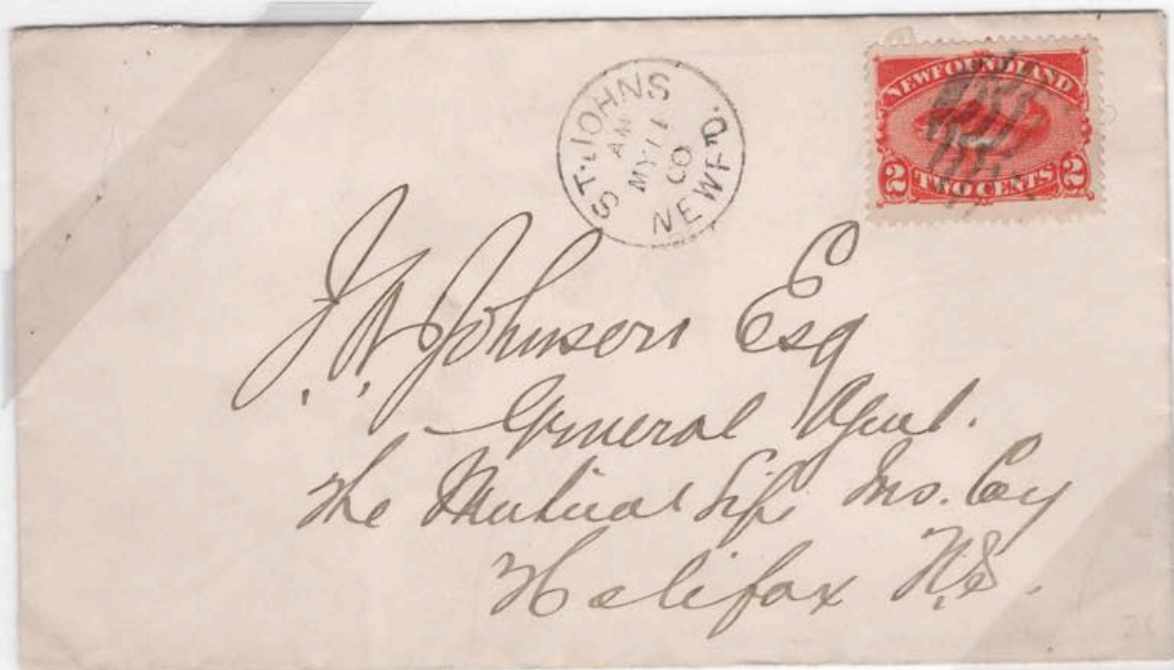 ST. JOHNS
AM
MY 11
NEWF'D.
NEWFOUNDLAND
2 TWO CENTS 2
J. A. Johnson Esq
General Agent.
The Mutual Life Ins. Coy
Halifax N.S.